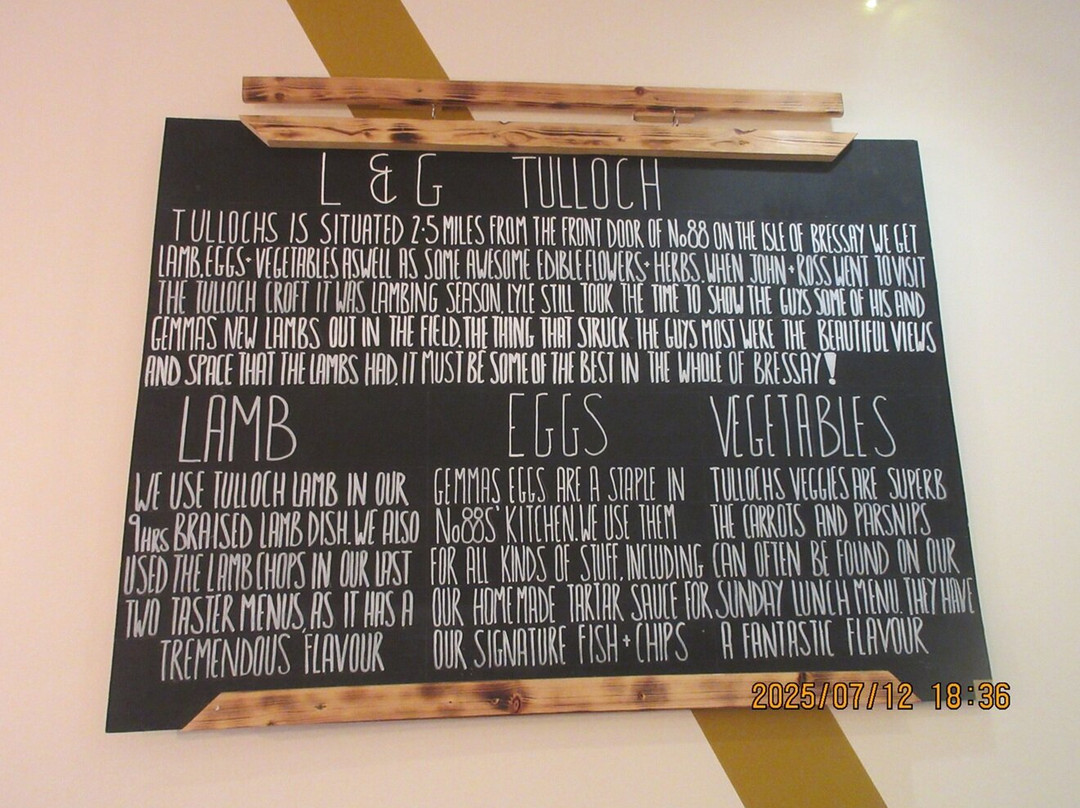 L & G TULLOCH
TULLOCHS IS SITUATED 2.5 MILES FROM THE FRONT DOOR OF No88 ON THE ISLE OF BRESSAY WE GET
LAMB, EGGS + VEGETABLES ASWELL AS SOME AWESOME EDIBLE FLOWERS + HERBS. WHEN JOHN + ROSS WENT TO VISIT
THE TULLOCH CROFT IT WAS LAMBING SEASON, LYLE STILL TOOK THE TIME TO SHOW THE GUYS SOME OF HIS AND
GEMMAS NEW LAMBS OUT IN THE FIELD. THE THING THAT STRUCK THE GUYS MOST WERE THE BEAUTIFUL VIEWS
AND SPACE THAT THE LAMBS HAD. IT MUST BE SOME OF THE BEST IN THE WHOLE OF BRESSAY!
LAMB
WE USE TULLOCH LAMB IN OUR
9HRS BRAISED LAMB DISH. WE ALSO
USED THE LAMB CHOPS IN OUR LAST
TWO TASTER MENUS, AS IT HAS A
TREMENDOUS FLAVOUR
EGGS
GEMMAS EGGS ARE A STAPLE IN
No88S' KITCHEN. WE USE THEM
FOR ALL KINDS OF STUFF, INCLUDING
OUR HOMEMADE TARTAR SAUCE FOR
OUR SIGNATURE FISH + CHIPS
VEGETABLES
TULLOCHS VEGGIES ARE SUPERB
THE CARROTS AND PARSNIPS
CAN OFTEN BE FOUND ON OUR
SUNDAY LUNCH MENU. THEY HAVE
A FANTASTIC FLAVOUR
2025/07/12 18:36